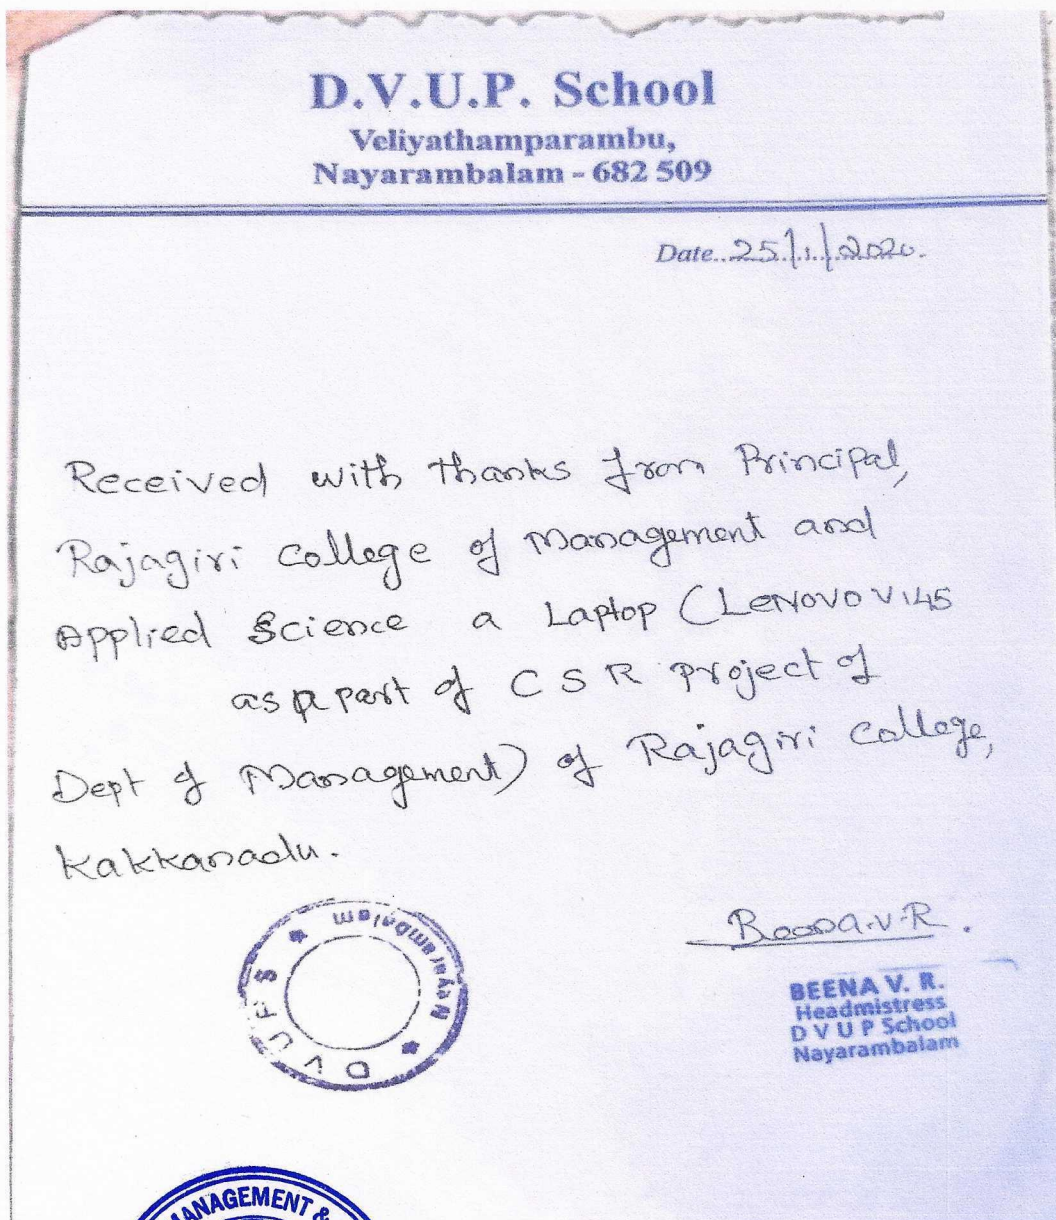 D.V.U.P. School
Veliyathamparambu,
Nayarambalam - 682 509
Date..25/1/2020.
Received with thanks from Principal,
Rajagiri College of Management and
Applied Science a Laptop (Lenovo V145
as a part of C S R project of
Dept of Management) of Rajagiri College,
Kakkanadu.
Beena.V.R.
BEENA V. R.
Headmistress
D V U P School
Nayarambalam
D V U P S ★ Nayarambalam ★
MANAGEMENT &